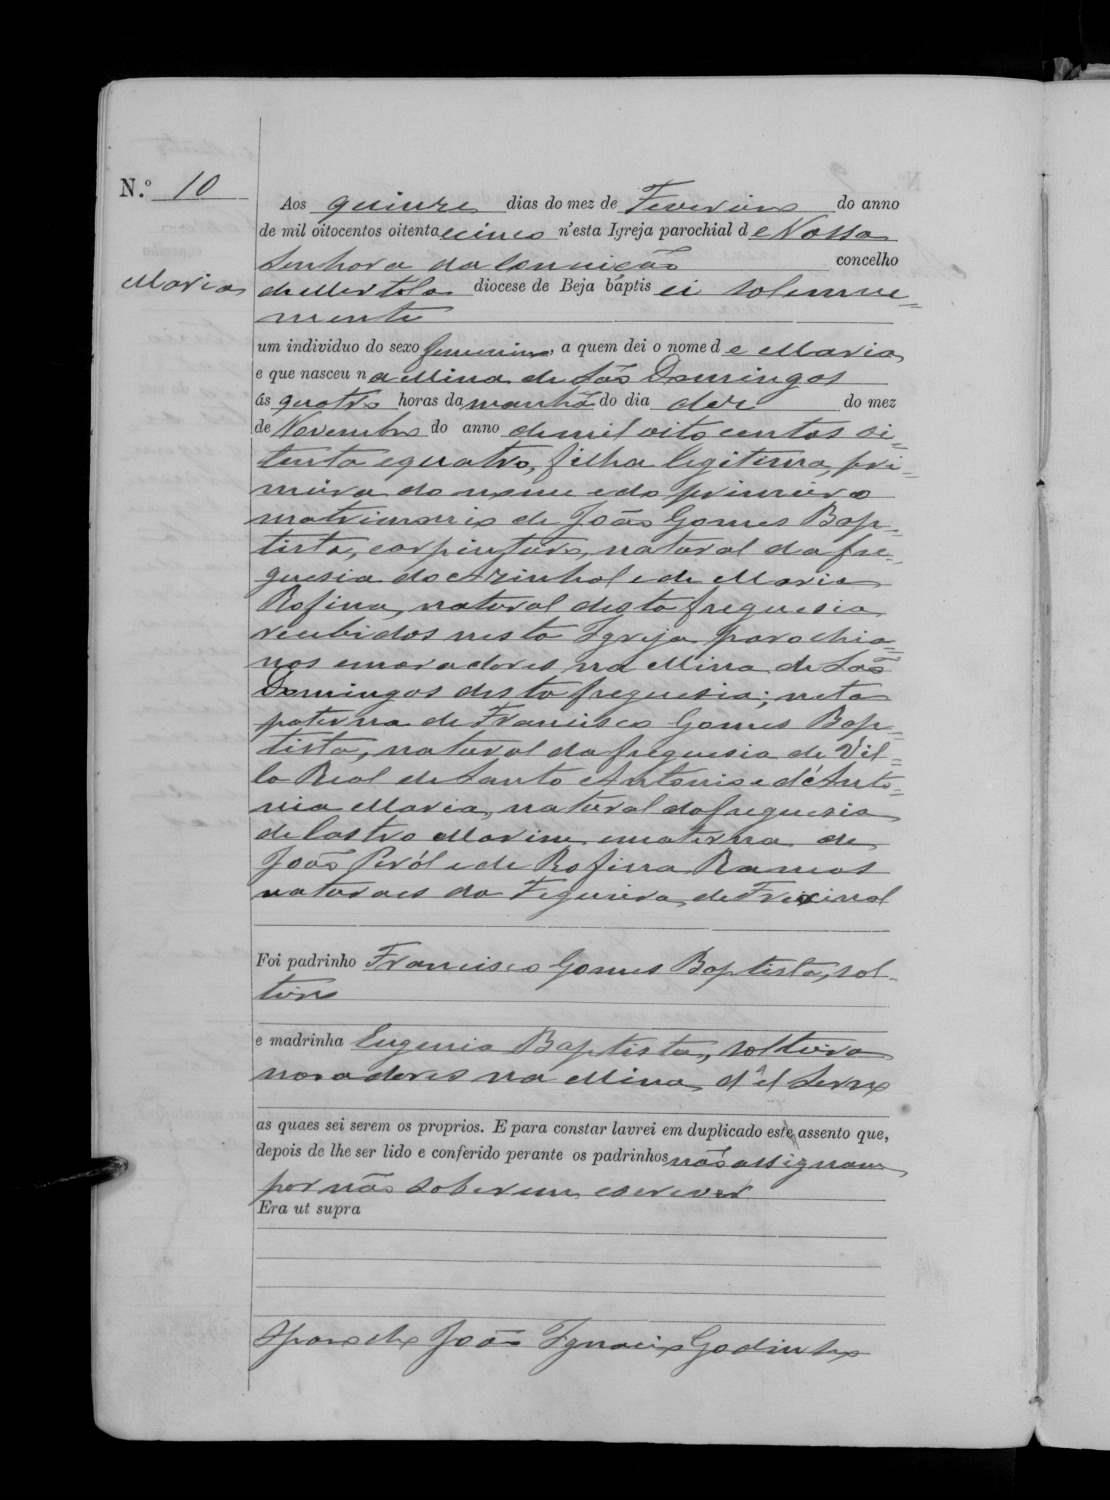 N.º 10
Aos quinze dias do mez de Fevereiro do anno
de mil oitocentos oitenta e cinco n'esta Igreja parochial de Nossa
Senhora da Conceição concelho
Maria
de Mertola diocese de Beja baptisei solemne=
mente
um individuo do sexo femenino, a quem dei o nome de Maria
e que nasceu na Mina de São Domingos
ás quatro horas da manhã do dia dez do mez
de Novembro do anno de mil oito centos oi=
tenta e quatro, filha legitima, pri=
meira do nome e do primeiro
matrimonio de João Gomes Bap=
tista, carpinteiro, natural da fre=
guesia do Azinhal e de Maria
Rofina, natural desta freguesia
recebidos nesta Igreja parochia=
nos e moradores na Mina de São
Domingos desta freguesia; neta
paterna de Francisco Gomes Bap=
tista, natural da freguesia de Vil=
la Real de Santo Antonio e d'Anto=
nia Maria, natural da freguesia
de Castro Marim e materna de
João Peról e de Rofina Ramos
naturaes da Figueira de Freixinal
Foi padrinho Francisco Gomes Baptista, sol=
teiro
e madrinha Eugenia Baptista, solteira
moradores na Mina
as quaes sei serem os proprios. E para constar lavrei em duplicado este assento que,
depois de lhe ser lido e conferido perante os padrinhos não assignam
por não saberem escrever
Era ut supra
O parocho João Ignacio Godinho